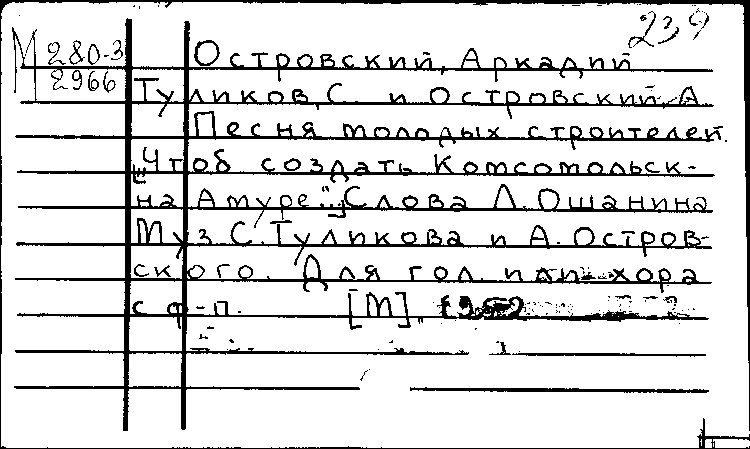 239
М 280-3
2966
Островский, Аркадий
Туликов, С. и Островский, А.
Песня молодых строителей.
„Чтоб создать Комсомольск-
на Амуре". Слова Л. Ошанина
Муз. С. Туликова и А. Остров-
ского. Для гол. или хора
с ф-п. [М],